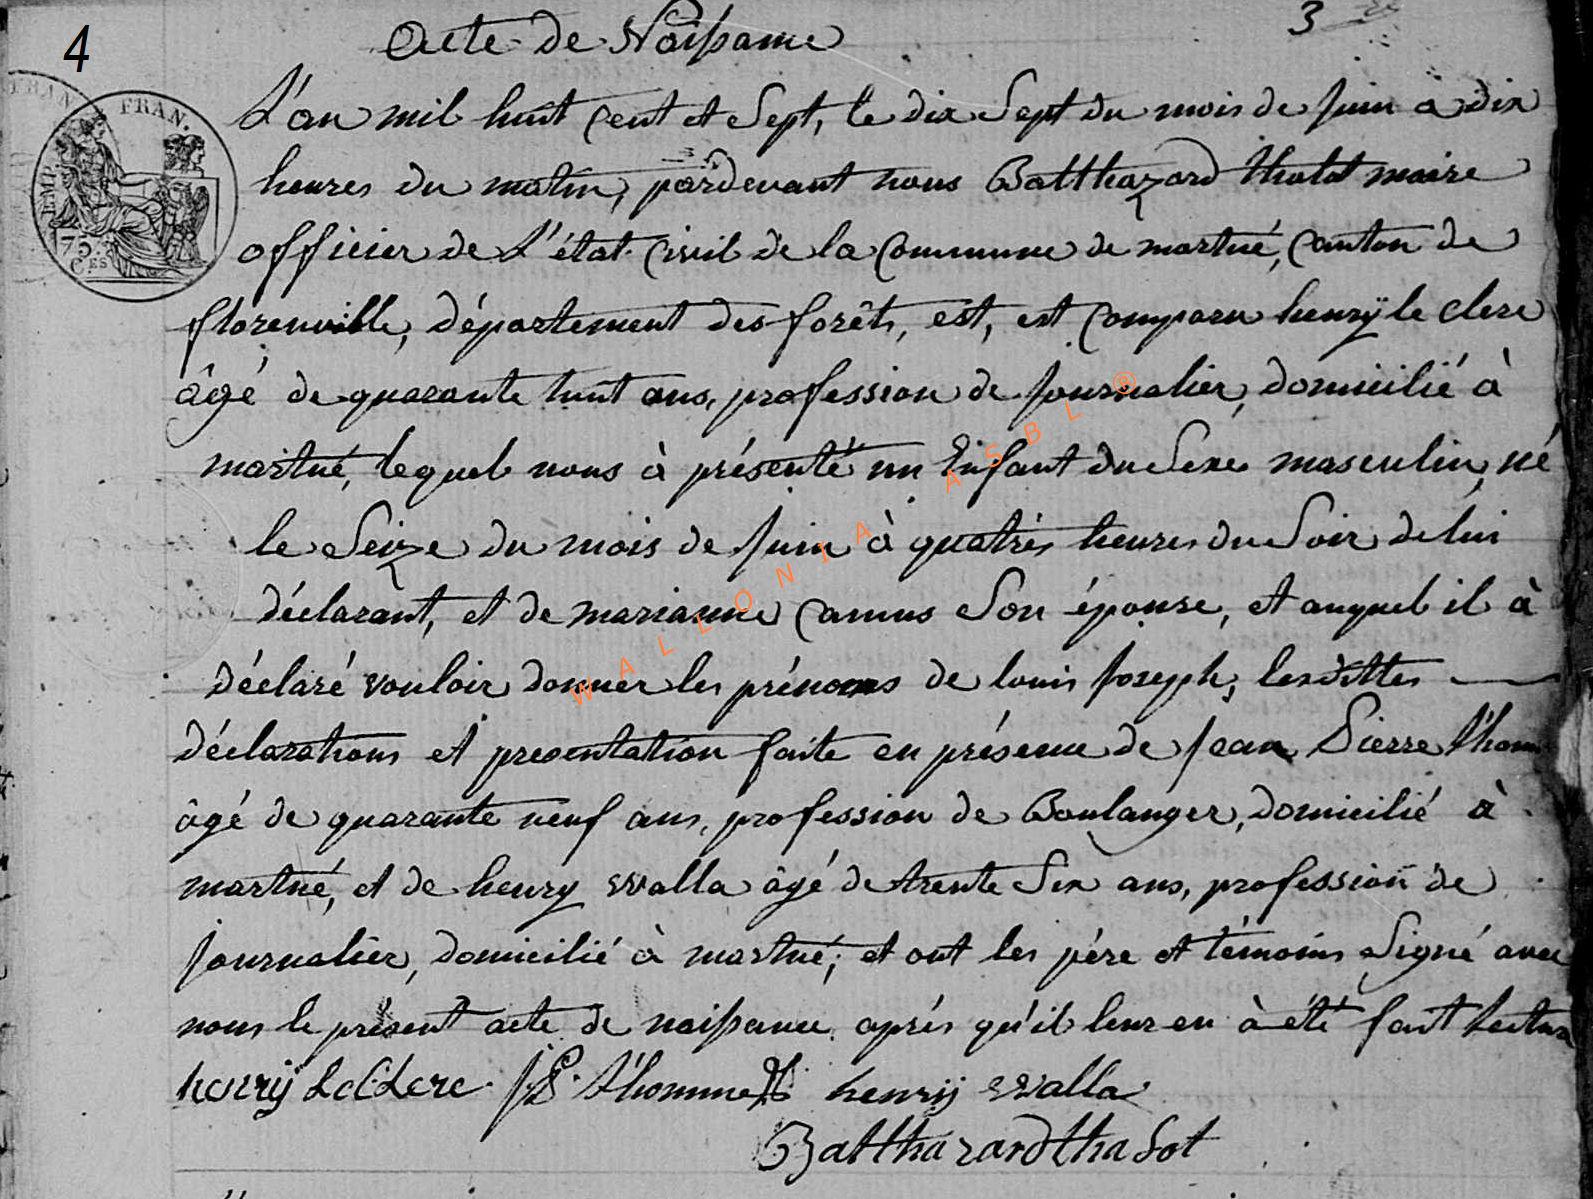 4
3
Acte de Naissance
FRAN.
EMP.
75.
CES
L'an mil huit Cent et Sept, le dix Sept du mois de Juin a dix
heures du matin, pardevant nous Batthazard thalot maire
officier de L'état Civil de la Commune de martué, Canton de
florenville, département des forêts, est, est Comparu henrÿ le clere
âgé de quarante huit ans, profession de Journalier, domicilié à
martué, lequel nous à présenté un Enfant du Sexe masculin, né
le Seize du mois de Juin à quatrés heures du Soir de lui
déclarant, et de marianne Camus Son épouse, et auquel il à
déclaré vouloir donner les prénoms de louis Joseph, lesdittes
déclarations et presentation faite en présence de Jean Pierre
âgé de quarante neuf ans, profession de Boulanger, domicilié à
martué, et de henry Walla âgé de trente Six ans, profession de
journalier, domicilié à martué; et ont les pére et témoins Signé avec
nous le présent acte de naissance aprés qu'il leur en à été fait lecture
henrÿ LeClere J P t'homme henrij Walla
Batthazard thalot
WALLONIA ASBL ®